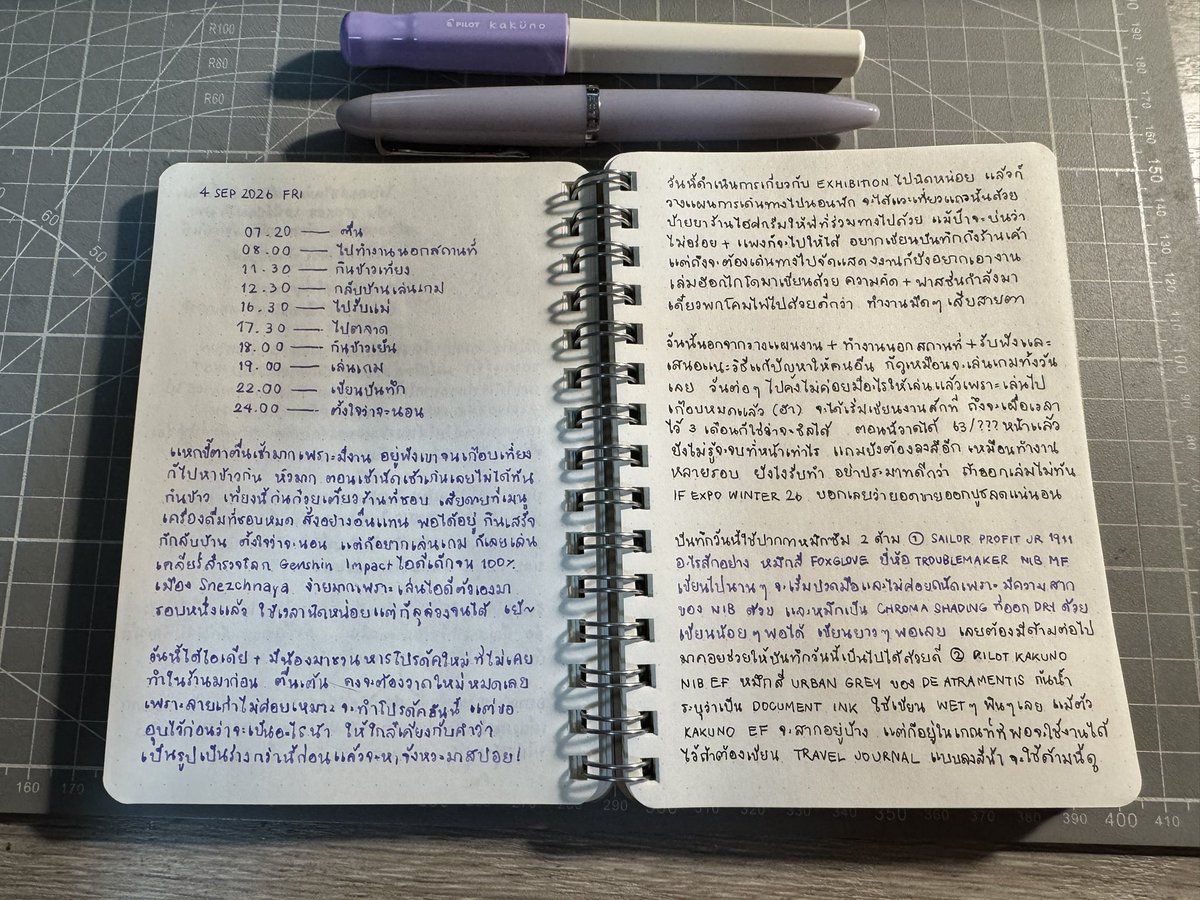 PILOT kaküno
R100
R80
R60
4 SEP 2026 FRI
07.20 — ตื่น
08.00 — ไปทำงานนอกสถานที่
11.30 — กินข้าวเที่ยง
12.30 — กลับบ้านเล่นเกม
16.30 — ไปรับแม่
17.30 — ไปตลาด
18.00 — กินข้าวเย็น
19.00 — เล่นเกม
22.00 — เขียนบันทึก
24.00 — ตั้งใจว่าจะนอน
แหกขี้ตาตื่นเช้ามากเพราะมีงาน อยู่ฟังเขาจนเกือบเที่ยง
ก็ไปหาข้าวกิน หิวมาก ตอนเช้านัดเช้าเกินเลยไม่ได้ทัน
กินข้าว เที่ยงนี้กินก๋วยเตี๋ยวร้านที่ชอบ เสียดายที่เมนู
เครื่องดื่มที่ชอบหมด สั่งอย่างอื่นแทน พอได้อยู่ กินเสร็จ
ก็กลับบ้าน ตั้งใจว่าจะนอน แต่ก็อยากเล่นเกม ก็เลยเล่น
เคลียร์สำรวจโลก Genshin Impact ไอดีเด็กจน 100%
เมือง Snezhnaya ง่ายมากเพราะเล่นไอดีตัวเองมา
รอบหนึ่งแล้ว ใช้เวลานิดหน่อยแต่ก็ลุล่วงจนได้ เย้~
วันนี้ได้ไอเดีย + มีน้องมาชวนหารโปรดักใหม่ ที่ไม่เคย
ทำในร้านมาก่อน ตื่นเต้น คงจะต้องวาดใหม่หมดเลย
เพราะลายเก่าไม่ค่อยเหมาะจะทำโปรดักอันนี้ แต่ขอ
อุบไว้ก่อนว่าจะเป็นอะไรน้า ให้ใกล้เคียงกับคำว่า
เป็นรูปเป็นร่างกว่านี้ก่อนแล้วจะหาจังหวะมาสปอย!
วันนี้ดำเนินการเกี่ยวกับ EXHIBITION ไปนิดหน่อย แล้วก็
วางแผนการเดินทางไปนอนพัก จะได้แวะเที่ยวแถวนั้นด้วย
ป้ายยาร้านไอศกรีมให้พี่ที่ร่วมทางไปด้วย แม้ป้าจะบ่นว่า
ไม่อร่อย + แพงก็จะไปให้ได้ อยากเขียนบันทึกถึงร้านเค้า
แต่ถึงจะต้องเดินทางไปจัดแสดงงานก็ยังอยากเอางาน
เล่มฮอกไกโดมาเขียนด้วย ความคิด + ฟาสชั่นกำลังมา
เดี๋ยวพกโคมไฟไปด้วยดีกว่า ทำงานมืดๆ เสียสายตา
วันนี้นอกจากวางแผนงาน + ทำงานนอกสถานที่ + รับฟังและ
เสนอแนะวิธีแก้ปัญหาให้คนอื่น ก็ดูเหมือนจะเล่นเกมทั้งวัน
เลย วันต่อๆ ไปคงไม่ค่อยมีอะไรให้เล่นแล้วเพราะเล่นไป
เกือบหมดแล้ว (ฮา) จะได้เริ่มเขียนงานสักที ถึงจะเผื่อเวลา
ไว้ 3 เดือนก็ใช่ว่าจะชิลได้ ตอนนี้วาดได้ 63/??? หน้าแล้ว
ยังไม่รู้จะจบที่หน้าเท่าไร แถมยังต้องลงสีอีก เหมือนทำงาน
หลายรอบ ยังไงรีบทำ อย่าประมาทดีกว่า ถ้าออกเล่มไม่ทัน
IF EXPO WINTER 26 บอกเลยว่ายอดขายออกบูธลดแน่นอน
บันทึกวันนี้ใช้ปากกาหมึกซึม 2 ด้าม ① SAILOR PROFIT JR 1911
อะไรสักอย่าง หมึกสี FOXGLOVE ยี่ห้อ TROUBLEMAKER NIB MF
เขียนไปนานๆ จะเริ่มปวดมือและไม่ค่อยถนัดเพราะมีความสาก
ของ NIB ด้วย และหมึกเป็น CHROMA SHADING ที่ออก DRY ด้วย
เขียนน้อยๆ พอได้ เขียนยาวๆ พอเลย เลยต้องมีด้ามต่อไป
มาคอยช่วยให้บันทึกวันนี้เป็นไปได้ด้วยดี ② PILOT KAKUNO
NIB EF หมึกสี URBAN GREY ของ DE ATRAMENTIS กันน้ำ
ระบุว่าเป็น DOCUMENT INK ใช้เขียน WET ๆ ฟินๆ เลย แม้ตัว
KAKUNO EF จะสากอยู่บ้าง แต่ก็อยู่ในเกณฑ์ที่พอจะใช้งานได้
ไว้ถ้าต้องเขียน TRAVEL JOURNAL แบบลงสีน้ำ จะใช้ด้ามนี้ดู
160 170 180
390 400 410